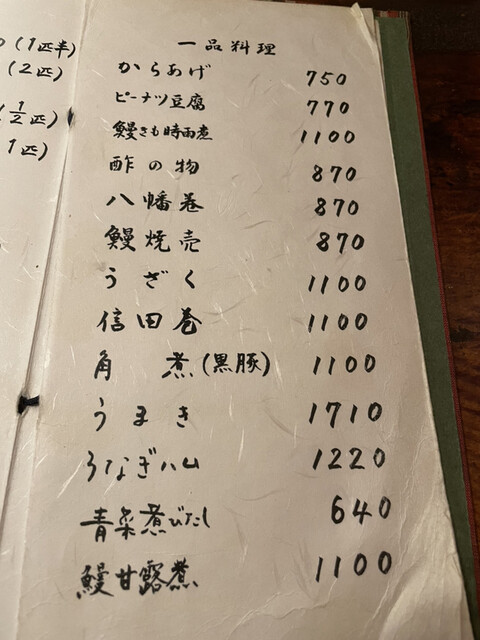 (1匹半)
(2匹)
(½匹)
1匹)
一品料理
からあげ 750
ピーナツ豆腐 770
鰻きも時雨煮 1100
酢の物 870
八幡巻 870
鰻焼売 870
うざく 1100
信田巻 1100
角煮(黒豚) 1100
うまき 1710
うなぎハム 1220
青菜煮びたし 640
鰻甘露煮 1100